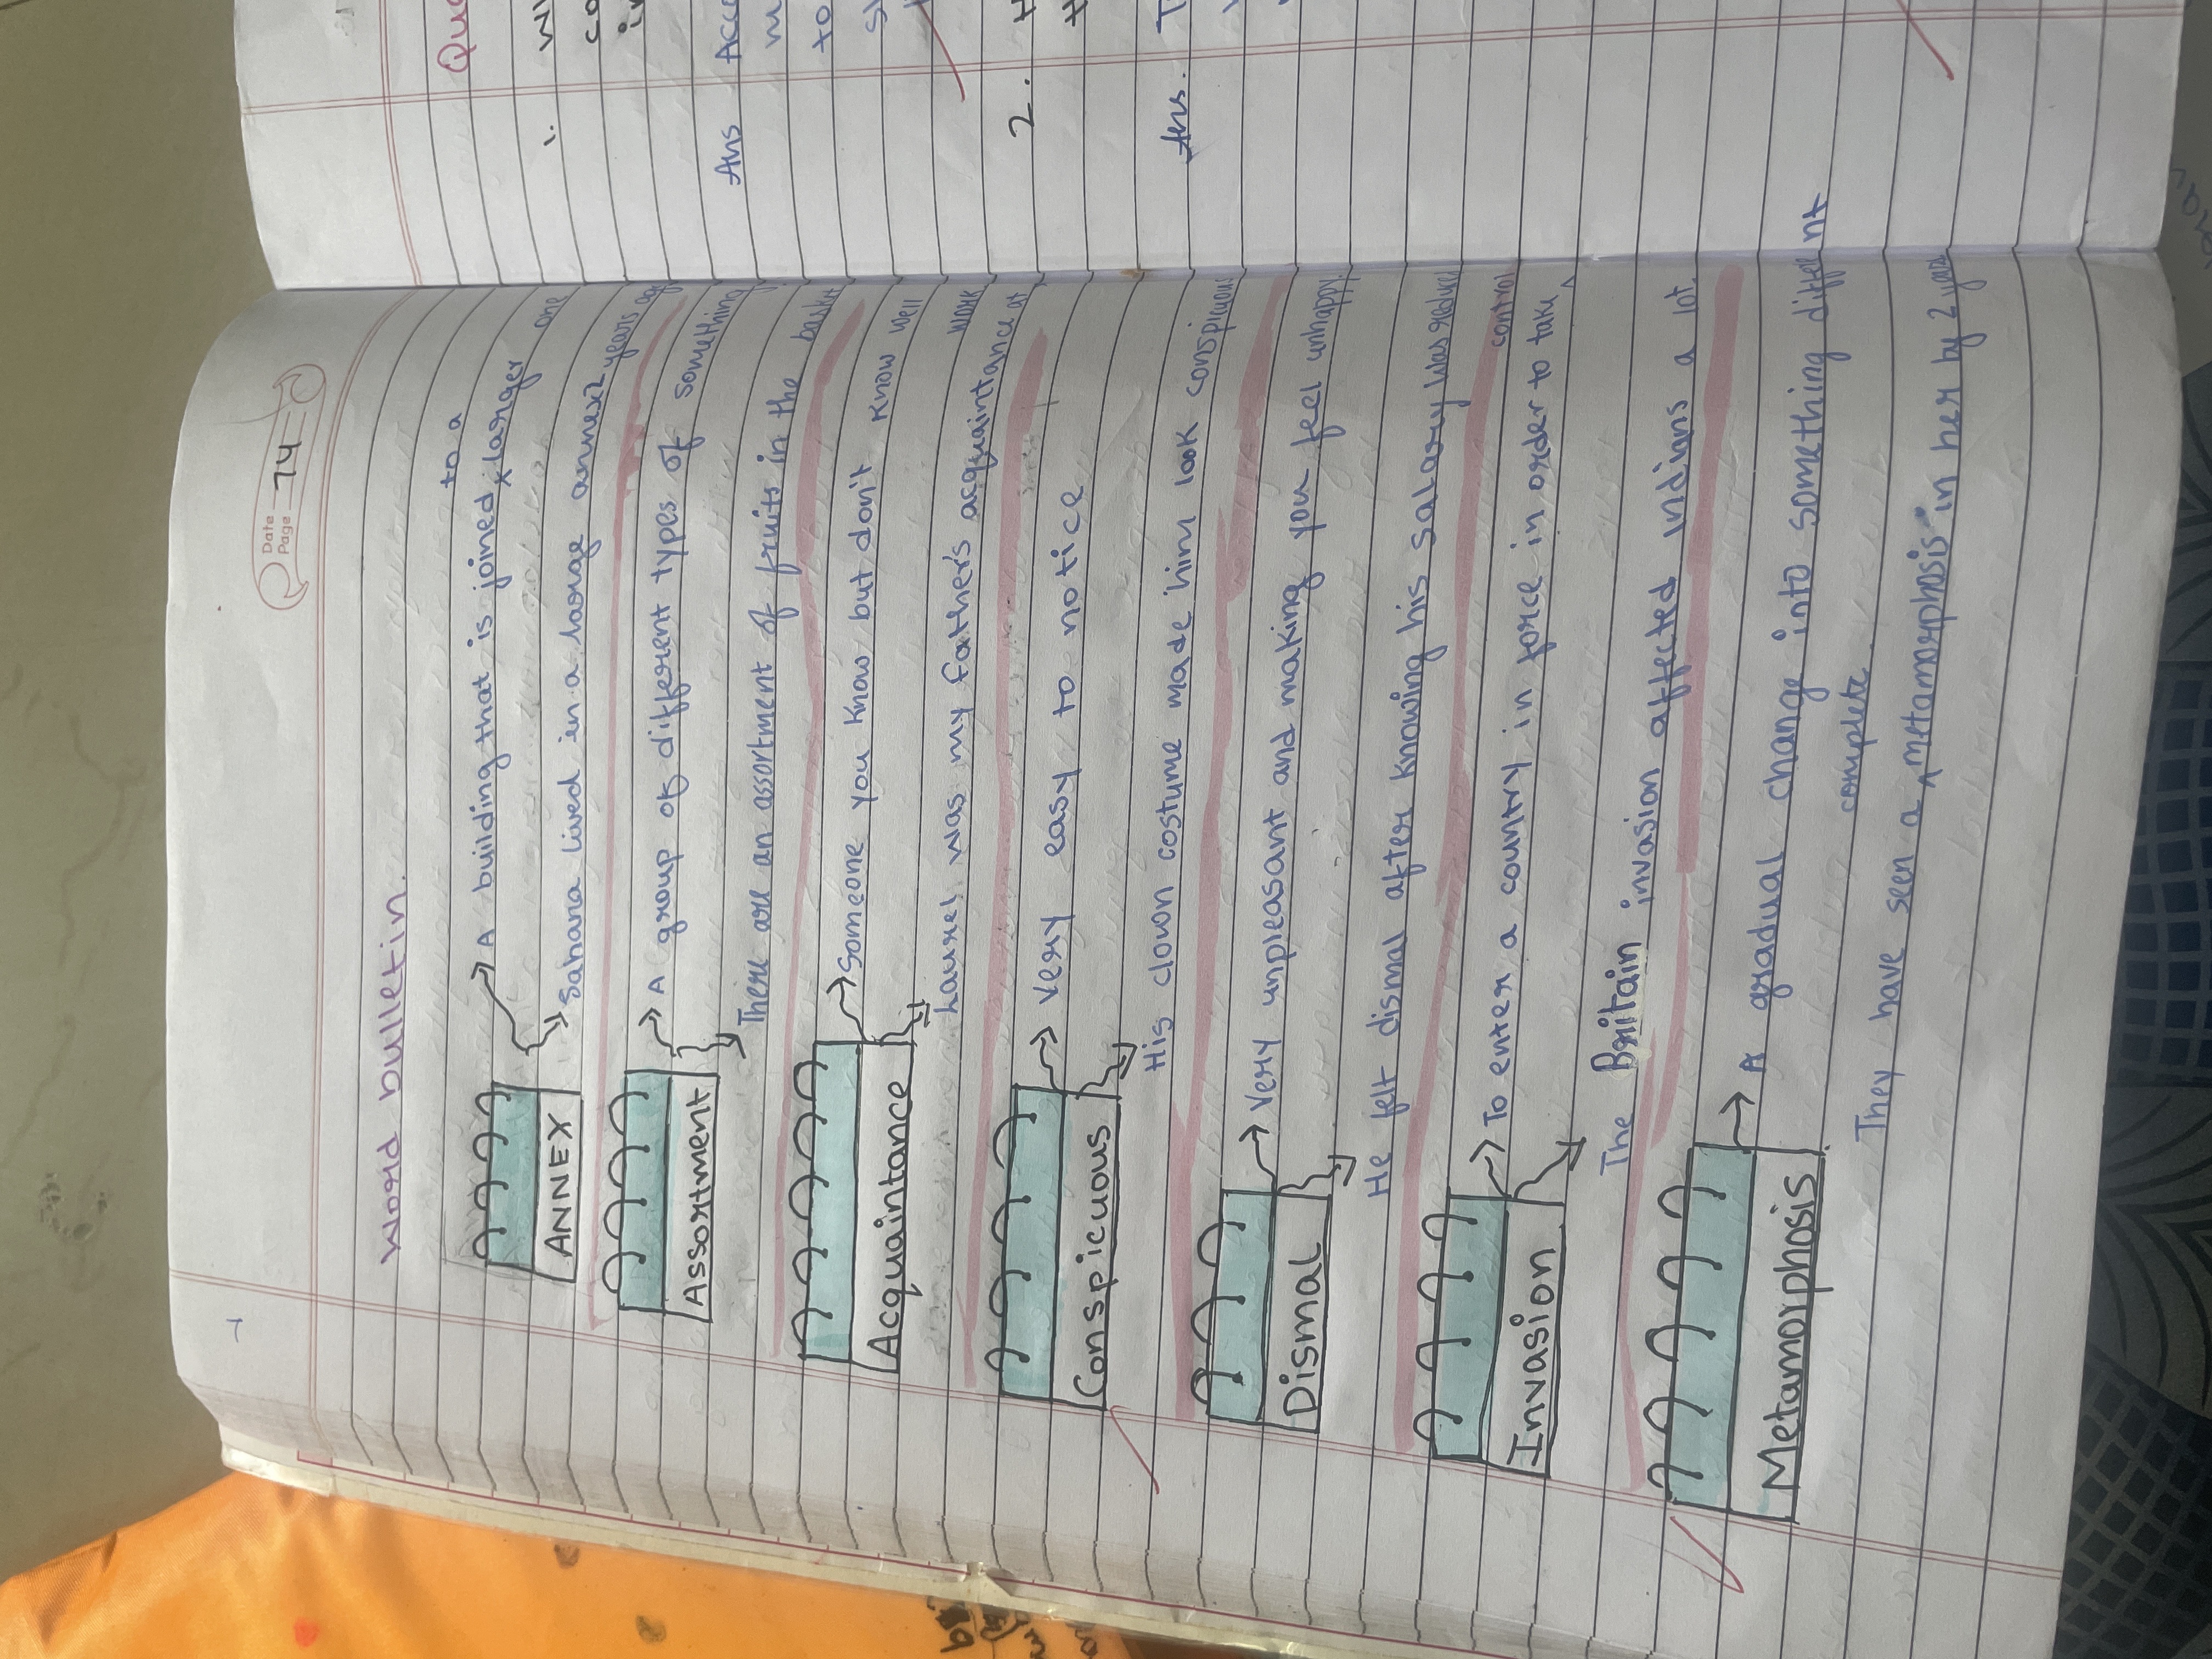 Date
Page 74
Word bulletin.
ANNEX
A building that is joined to a larger one
Sahana lived in a large annex 2 years ago
Assortment
A group of different types of something
There are an assortment of fruits in the basket
Acquaintance
Someone you know but don't know well
Laurel was my father's acquaintance at work
Conspicuous
Very easy to notice
His clown costume made him look conspicuous
Dismal
Very unpleasant and making you feel unhappy.
He felt dismal after knowing his salary was reduced
Invasion
To enter a country in force in order to take control
The Britain invasion affected Indians a lot.
Metamorphosis
A gradual change into something different
They have seen a complete metamorphosis in her by 2 years
Ans
2.
Ans.